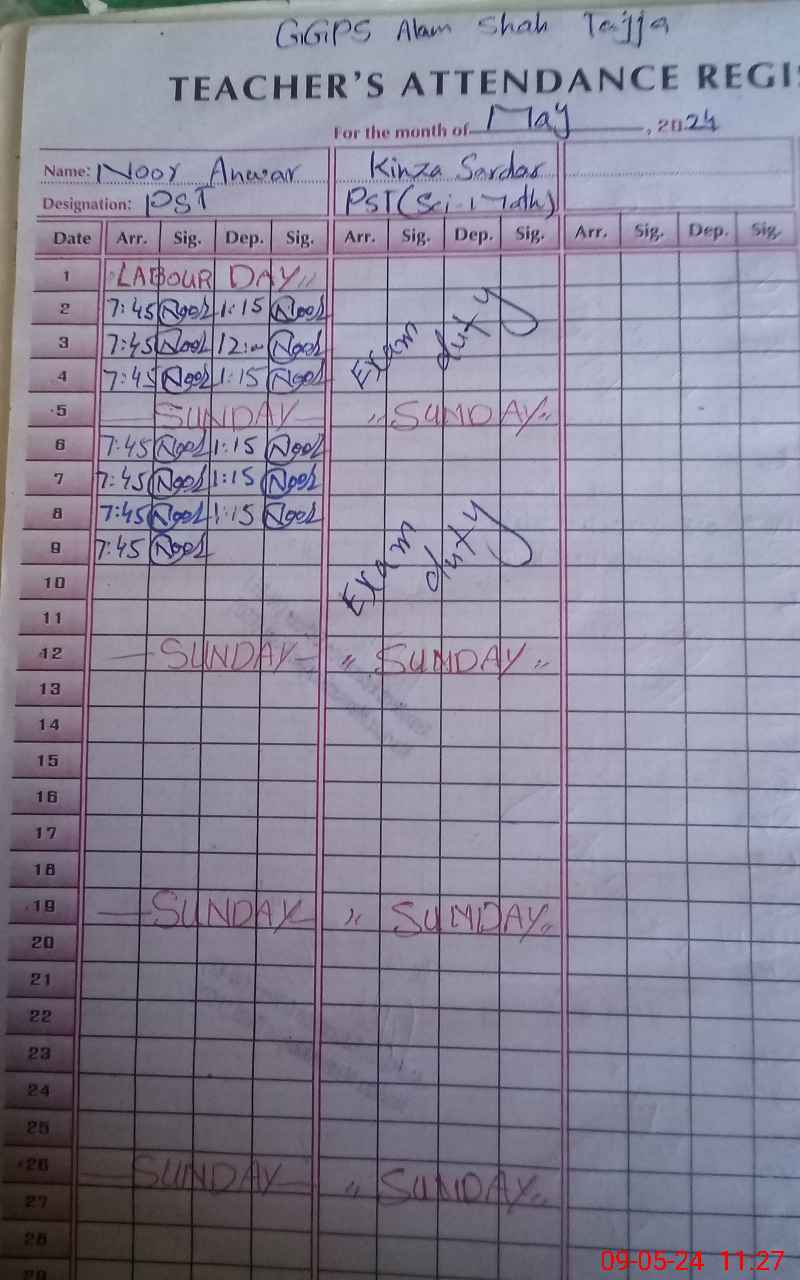 GGPS Alam Shah Tajja
TEACHER'S ATTENDANCE REGI
For the month of May, 2024
Name: Noor Anwar Kinza Sardar
Designation: PST PST (Sci-Math)
Date Arr. Sig. Dep. Sig. Arr. Sig. Dep. Sig. Arr. Sig. Dep. Sig.
1 LABOUR DAY
2 7:45 Noor 1:15 Noor
3 7:45 Noor 12:00 Noor Exam duty
4 7:45 Noor 1:15 Noor
5 SUNDAY SUNDAY
6 7:45 Noor 1:15 Noor
7 7:45 Noor 1:15 Noor
8 7:45 Noor 1:15 Noor
9 7:45 Noor Exam duty
10
11
12 SUNDAY SUNDAY
13
14
15
16
17
18
19 SUNDAY SUNDAY
20
21
22
23
24
25
26 SUNDAY SUNDAY
27
28
29
09-05-24 11.27